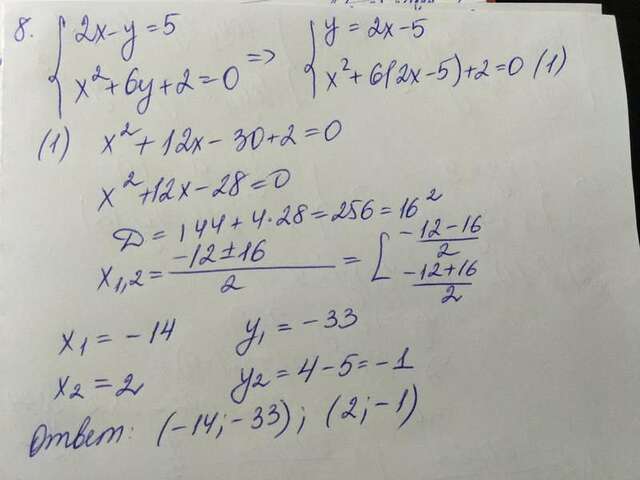 8. { 2x-y=5 { y=2x-5
x²+6y+2=0 => x²+6(2x-5)+2=0 (1)
(1) x²+12x-30+2=0
x²+12x-28=0
Д=144+4·28=256=16²
x₁,₂= (-12±16)/2 = [ (-12-16)/2
(-12+16)/2
x₁=-14 y₁=-33
x₂=2 y₂=4-5=-1
Ответ: (-14;-33); (2;-1)